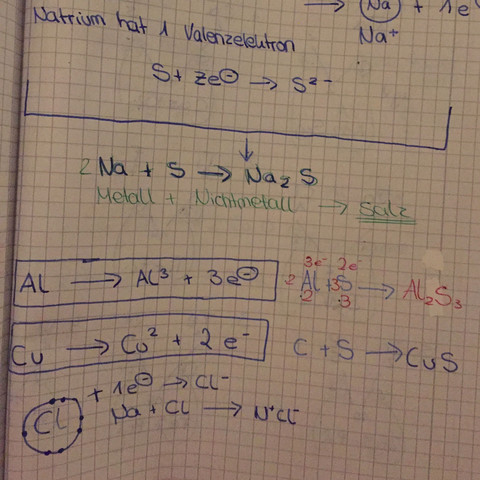 → Na + 1e⁻
Na⁺
Natrium hat 1 Valenzelektron
S + 2e⊖ → S²⁻
2 Na + S → Na₂S
Metall + Nichtmetall → Salz
Al → Al³ + 3e⊖
3e⁻ 2e⁻
2 Al + 3S → Al₂S₃
·2 ·3
Cu → Cu² + 2e⁻
C + S → CuS
Cl + 1e⊖ → Cl⁻
Na + Cl → N⁺Cl⁻